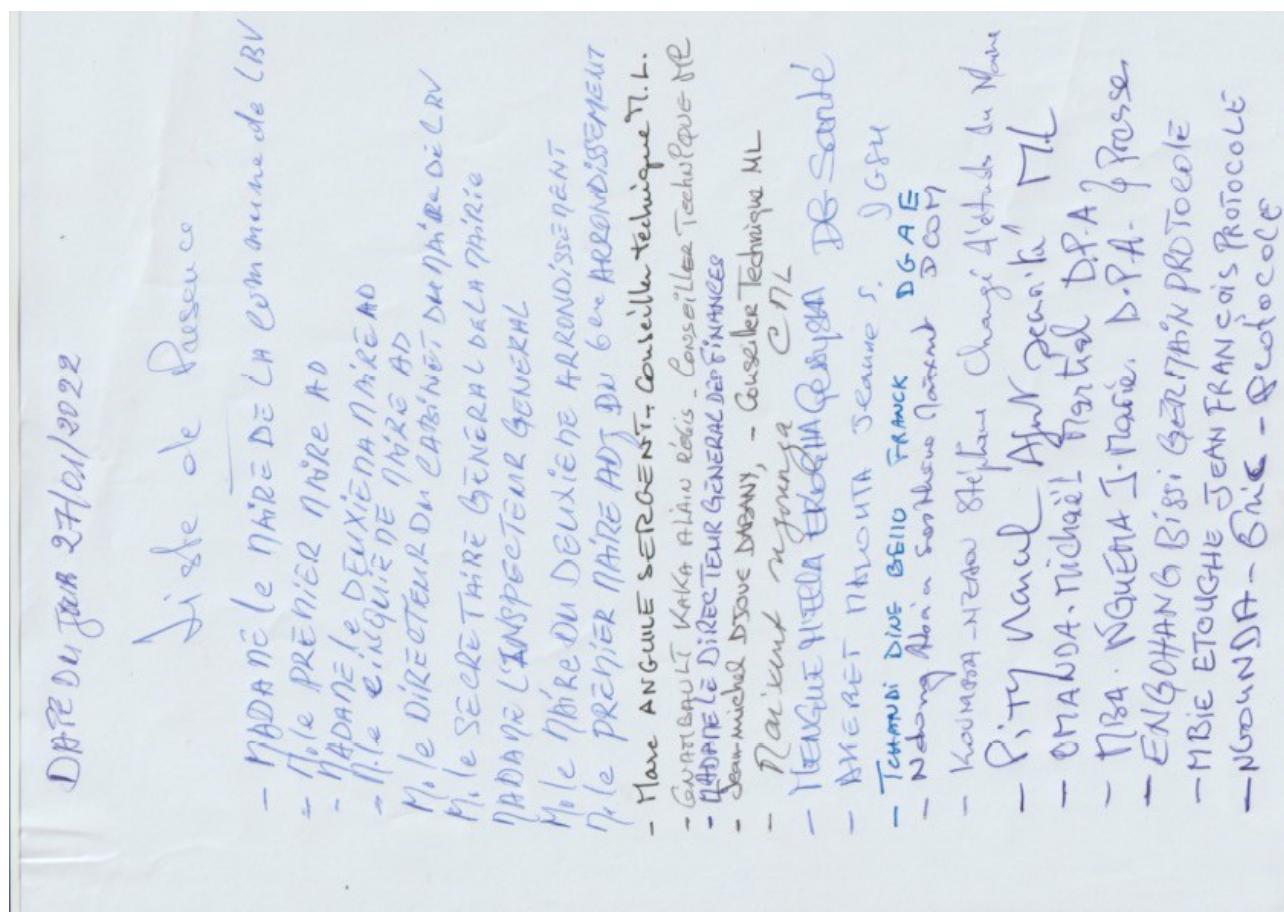 DATE DU JOUR 27/01/2022
Liste de Presence
- MADAME le MAIRE DE LA Commune de LBV
- M. le PREMIER MAIRE AD
- MADAME le DEUXIEME MAIRE AD
- M. le CINQUIEME MAIRE AD
M. le DIRECTEUR DU CABINET DU MAIRE DE LBV
M. le SECRETAIRE GENERAL DE LA MAIRIE
MADAME L'INSPECTEUR GENERAL
M. le MAIRE DU DEUXIEME ARRONDISSEMENT
M. le PREMIER MAIRE ADJ DU 6eme ARRONDISSEMENT
- Marc ANGUILE SERGENT. Conseiller technique M.L.
- GNAMBAULT KAKA ALAIN REGIS - CONSEILLER TECHNIQUE
- MADAME LE DIRECTEUR GENERAL DES FINANCES
- Jean-michel DJOUE DABANY, - Conseiller Technique ML
- CML
- MENGUE DG-Santé
- AMERET Jeanne S.
- TCHANDI DINE BELLO FRANCK DGAE
- Ndong DCOM
- KOUMBA-NZAOU Stéphane Chargé d'études du Maire
- PITY Marcel Agent Sécurité ML
- OMANDA. Michaël Martial D.P.A
- MBA. NGUEMA J. Marie. D.P.A. Presse
- ENGOHANG BISSI GERMAIN PROTOCOLE
- MBIE ETOUGHE JEAN FRANCOIS PROTOCOLE
- NGOUNDA - Eric - PROTOCOLE